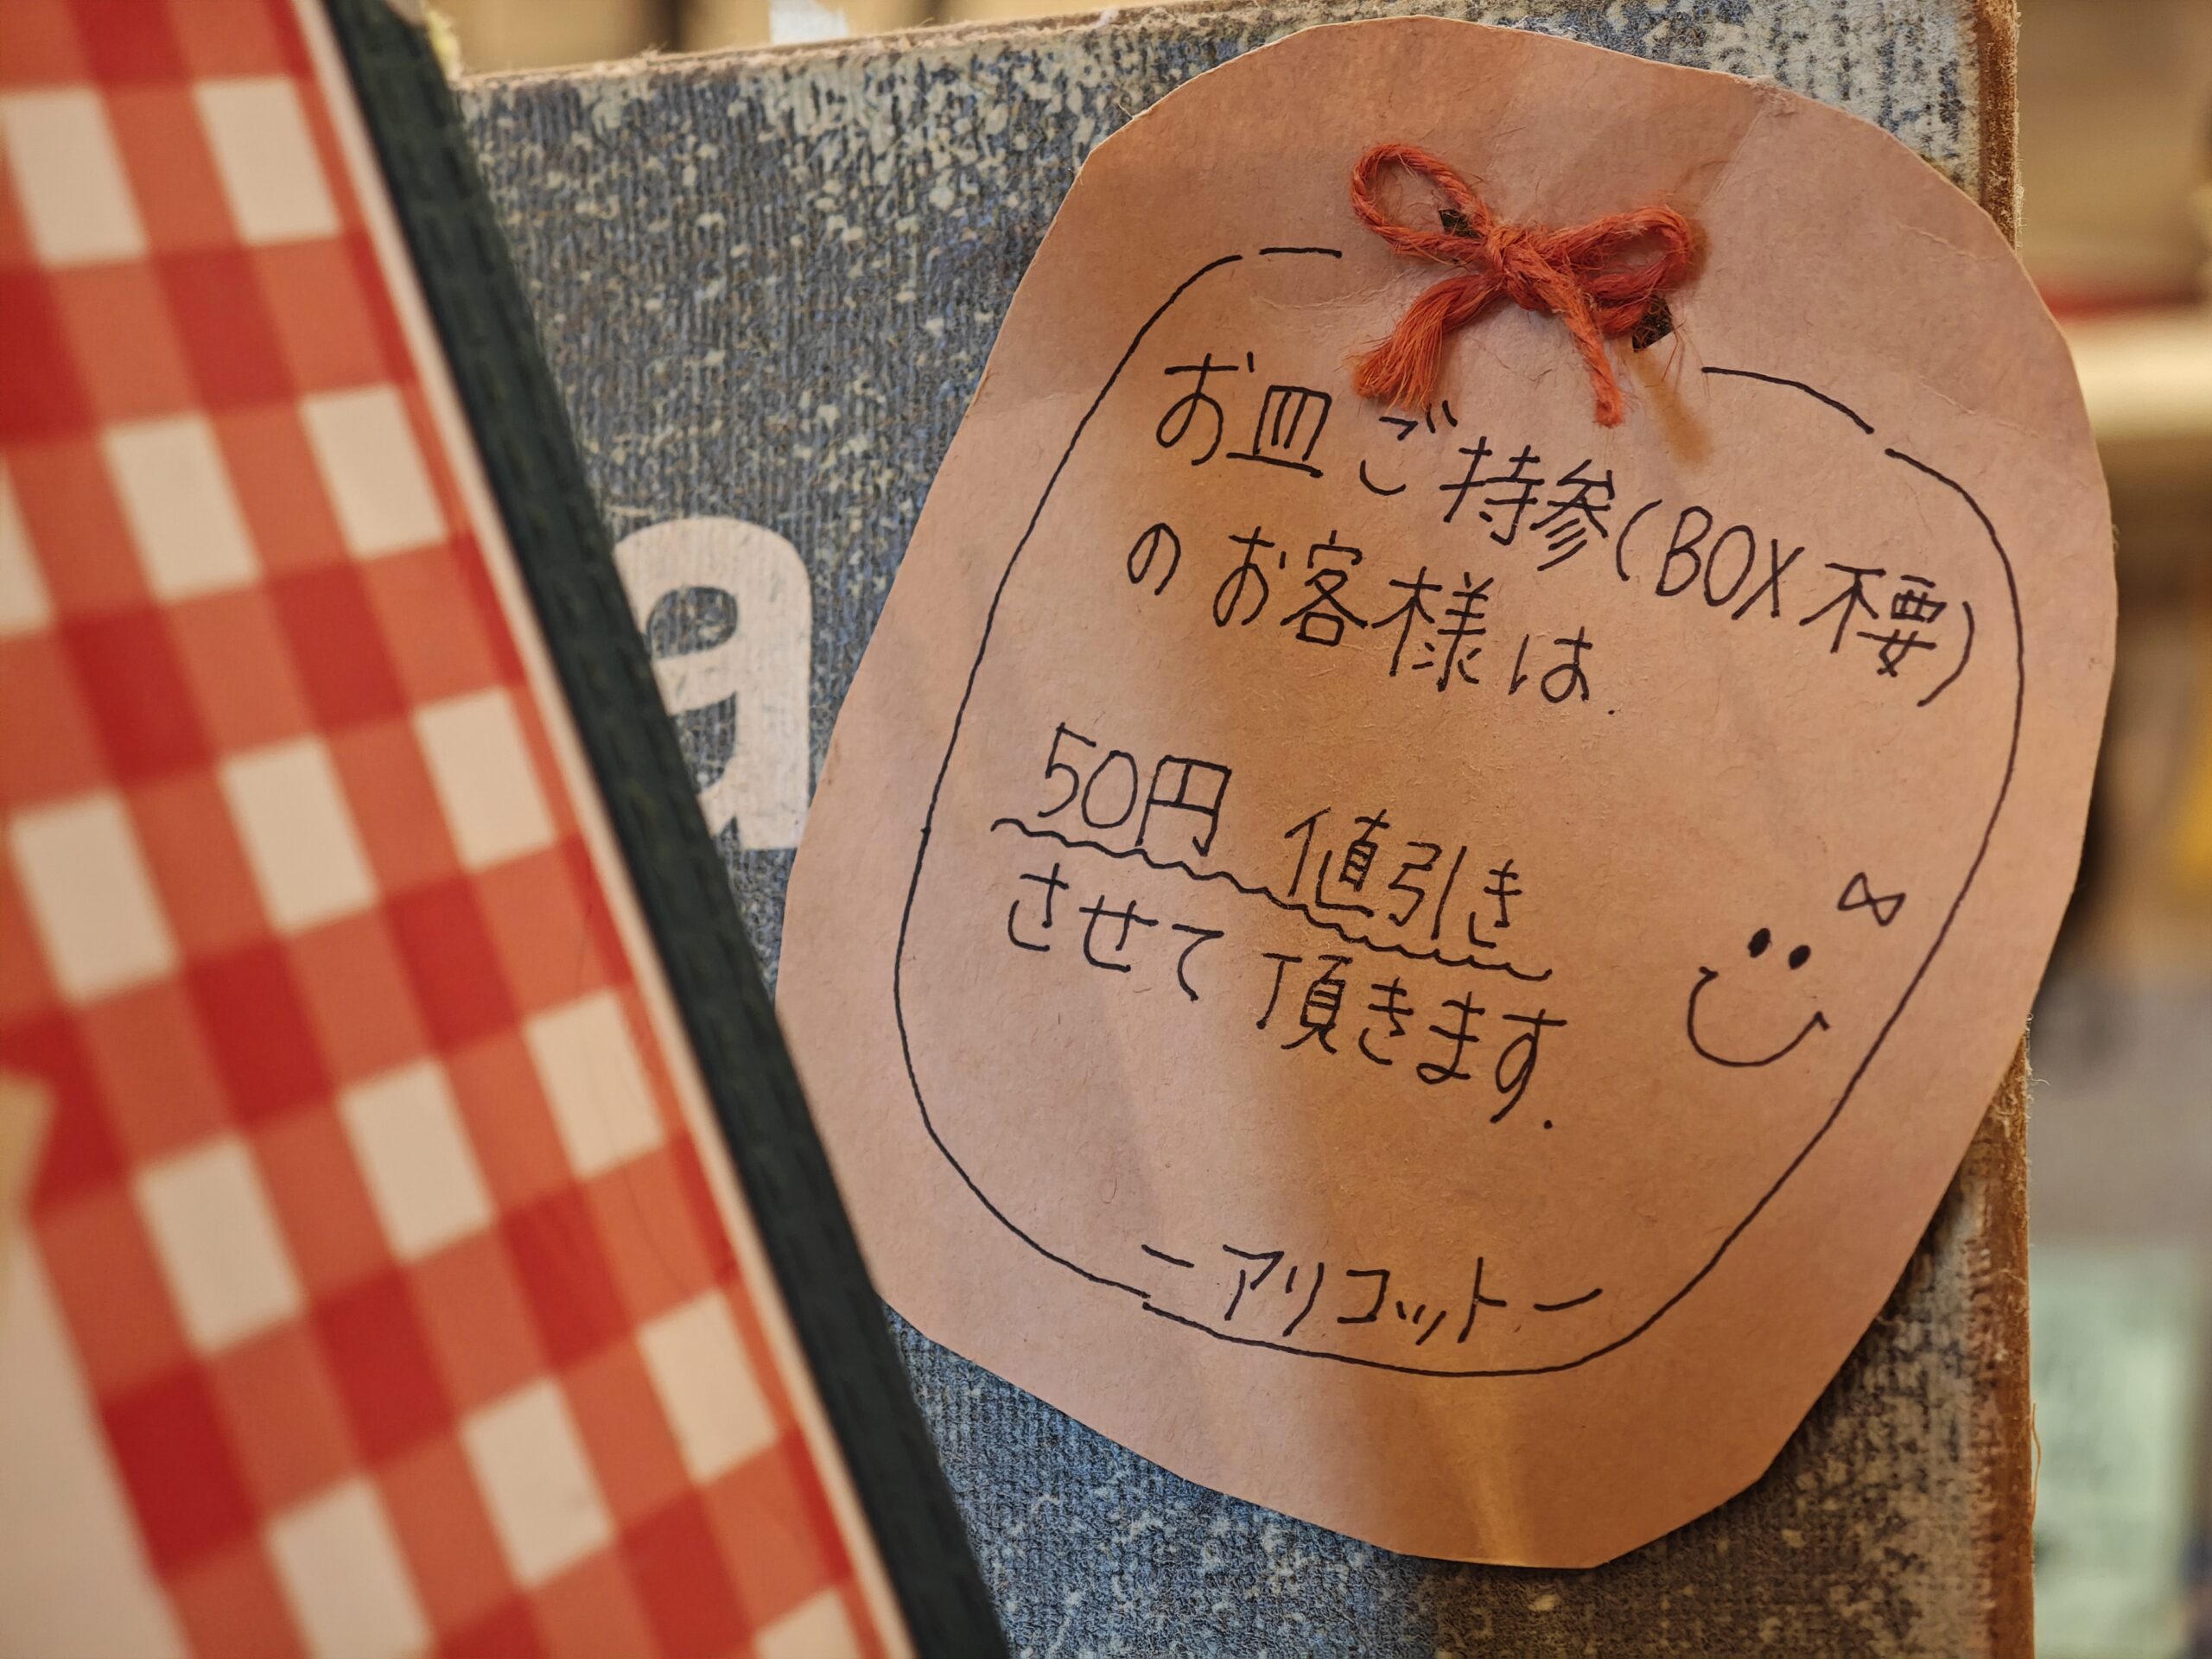 a
お皿ご持参(BOX不要)
のお客様は.
50円 値引き
させて頂きます.
-アリコット-